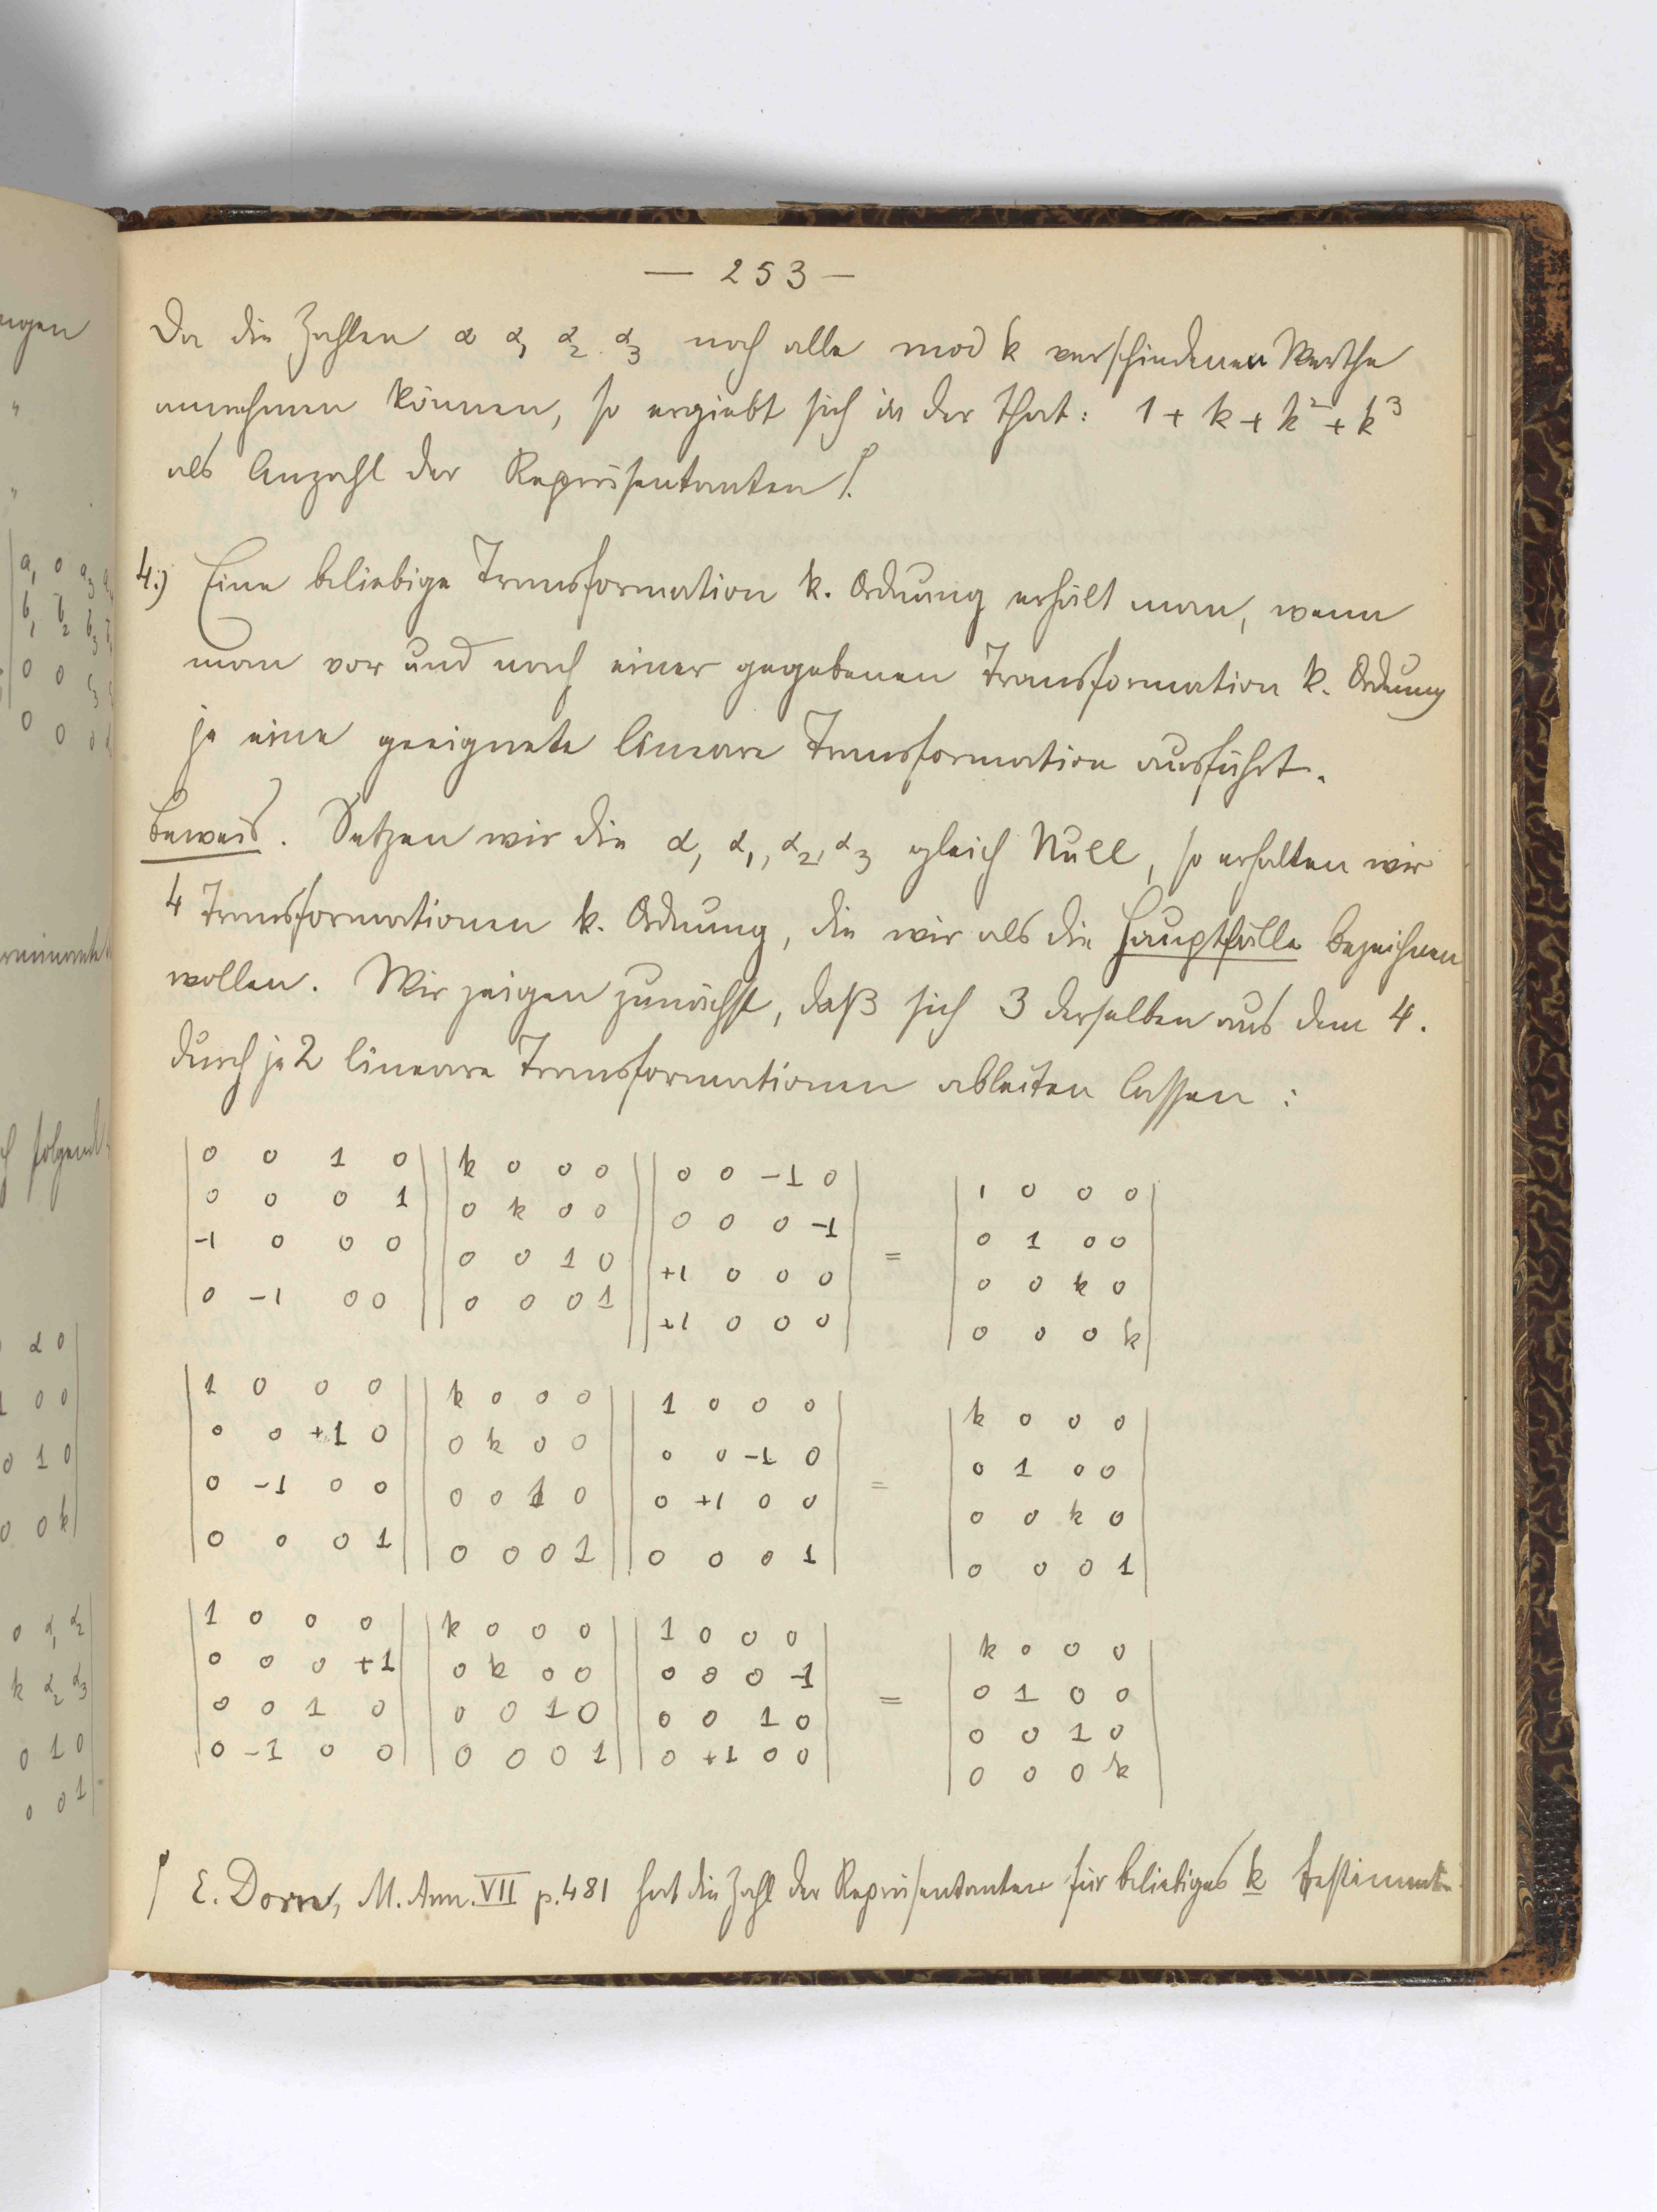 — 253 —
Da die Zahlen α α₁ α₂ α₃ noch alle mod k verschiedenen Werthe
annehmen können, so ergiebt sich in der That: 1 + k + k² + k³
als Anzahl der Repräsentanten!
4.) Eine beliebige Transformation k. Ordnung erhält man, wenn
man vor und nach einer gegebenen Transformation k. Ordnung
je eine geeignete lineare Transformation ausführt.
Beweis. Setzen wir die α, α₁, α₂, α₃ gleich Null, so erhalten wir
4 Transformationen k. Ordnung, die wir als die Hauptfälle bezeichnen
wollen. Wir zeigen zunächst, daß sich 3 derselben aus dem 4.
durch je 2 lineare Transformationen ableiten lassen:
| 0 0 1 0 | | k 0 0 0 | | 0 0 -1 0 | | 1 0 0 0 |
| 0 0 0 1 | | 0 k 0 0 | | 0 0 0 -1 | | 0 1 0 0 |
| -1 0 0 0 | | 0 0 1 0 | | +1 0 0 0 | = | 0 0 k 0 |
| 0 -1 0 0 | | 0 0 0 1 | | +1 0 0 0 | | 0 0 0 k |
| 1 0 0 0 | | k 0 0 0 | | 1 0 0 0 | | k 0 0 0 |
| 0 0 +1 0 | | 0 k 0 0 | | 0 0 -1 0 | | 0 1 0 0 |
| 0 -1 0 0 | | 0 0 1 0 | | 0 +1 0 0 | = | 0 0 k 0 |
| 0 0 0 1 | | 0 0 0 1 | | 0 0 0 1 | | 0 0 0 1 |
| 1 0 0 0 | | k 0 0 0 | | 1 0 0 0 | | k 0 0 0 |
| 0 0 0 +1 | | 0 k 0 0 | | 0 0 0 -1 | | 0 1 0 0 |
| 0 0 1 0 | | 0 0 1 0 | | 0 0 1 0 | = | 0 0 1 0 |
| 0 -1 0 0 | | 0 0 0 1 | | 0 +1 0 0 | | 0 0 0 k |
E. Dorn, M. Ann. VII p. 481 hat die Zahl der Repräsentanten für beliebiges k bestimmt